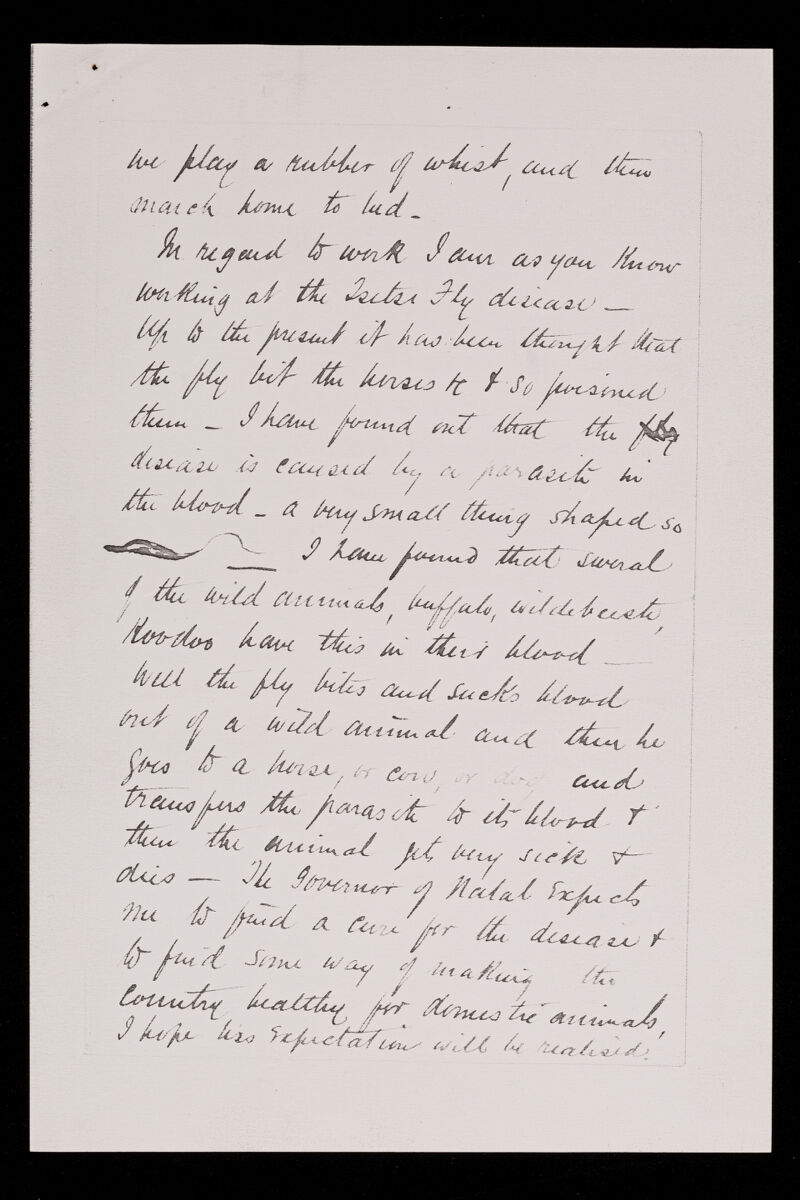 we play a rubber of whist, and then
march home to bed -
In regard to work I am as you know
working at the Tsetse Fly disease —
Up to the present it has been thought that
the fly bit the horses &c & so poisoned
them - I have found out that the fly
disease is caused by a parasite in
the blood - a very small thing shaped so
— I have found that several
of the wild animals, buffalo, wildebeeste,
Koodoo have this in their blood —
Well the fly bites and sucks blood
out of a wild animal and then he
goes to a horse, or cow, or dog and
transfers the parasite to its blood &
then the animal gets very sick &
dies — The Governor of Natal expects
me to find a cure for the disease &
to find some way of making the
country healthy for domestic animals,
I hope his expectation will be realised.